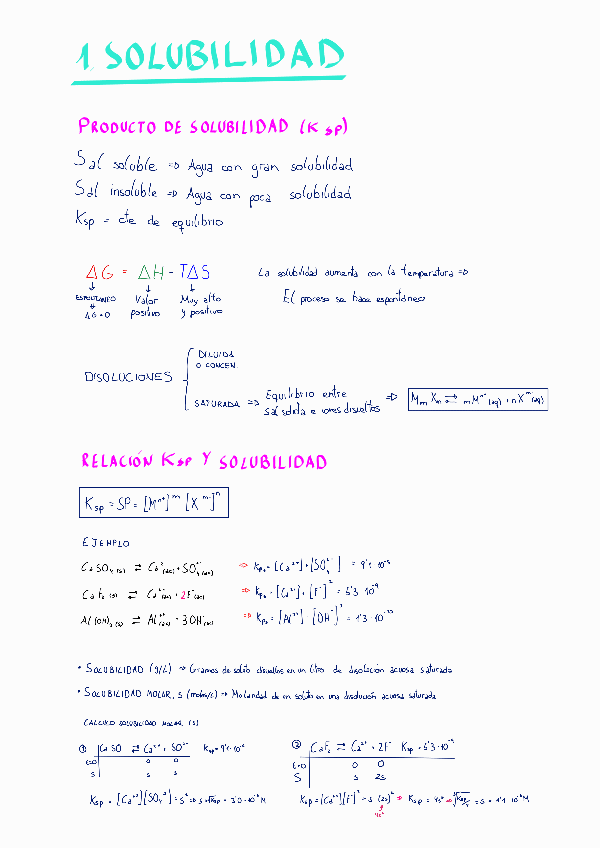 1. SOLUBILIDAD
PRODUCTO DE SOLUBILIDAD (K sp)
Sal soluble => Agua con gran solubilidad
Sal insoluble => Agua con poca solubilidad
Ksp = cte de equilibrio
ΔG = ΔH - TΔS
La solubilidad aumenta con la temperatura =>
El proceso se hace espontáneo
ESPONTANEO
Valor positivo
Muy alto y positivo
DISOLUCIONES
DILUIDA
O CONCEN.
SATURADA => Equilibrio entre
sal sólida e iones disueltos
=> MmXn ⇄ mMⁿ⁺(aq) + nXᵐ⁻(aq)
RELACIÓN Ksp Y SOLUBILIDAD
Ksp = SP = [Mⁿ⁺]ᵐ [Xᵐ⁻]ⁿ
EJEMPLO
CaSO₄(s) ⇄ Ca²⁺(ac) + SO₄²⁻(ac) => Kps = [Ca²⁺]·[SO₄²⁻] = 9'1·10⁻⁶
CaF₂(s) ⇄ Ca²⁺(ac) + 2F⁻(ac) => Kps = [Ca²⁺]·[F⁻]² = 5'3·10⁻⁹
Al(OH)₃(s) ⇄ Al³⁺(ac) + 3OH⁻(ac) => Kps = [Al³⁺]·[OH⁻]³
• SOLUBILIDAD (g/L) => Gramos de soluto disueltos en un litro de disolución acuosa saturada
• SOLUBILIDAD MOLAR, s (moles/L) => Molaridad de un soluto en una disolución acuosa saturada
CALCULO SOLUBILIDAD MOLAR (s)
① CaSO ⇄ Ca²⁺ + SO²⁻ Ksp = 9'1·10⁻⁶
t=0 0 0
S s s
Ksp = [Ca²⁺][SO₄²⁻] = s² => s = √Ksp = 3'0·10⁻³M
② CaF₂ ⇄ Ca²⁺ + 2F⁻ Ksp = 5'3·10⁻⁹
t=0 0 0
S s 2s
Ksp = [Ca²⁺][F⁻]² = s·(2s)² => Ksp = 4s³
4s²